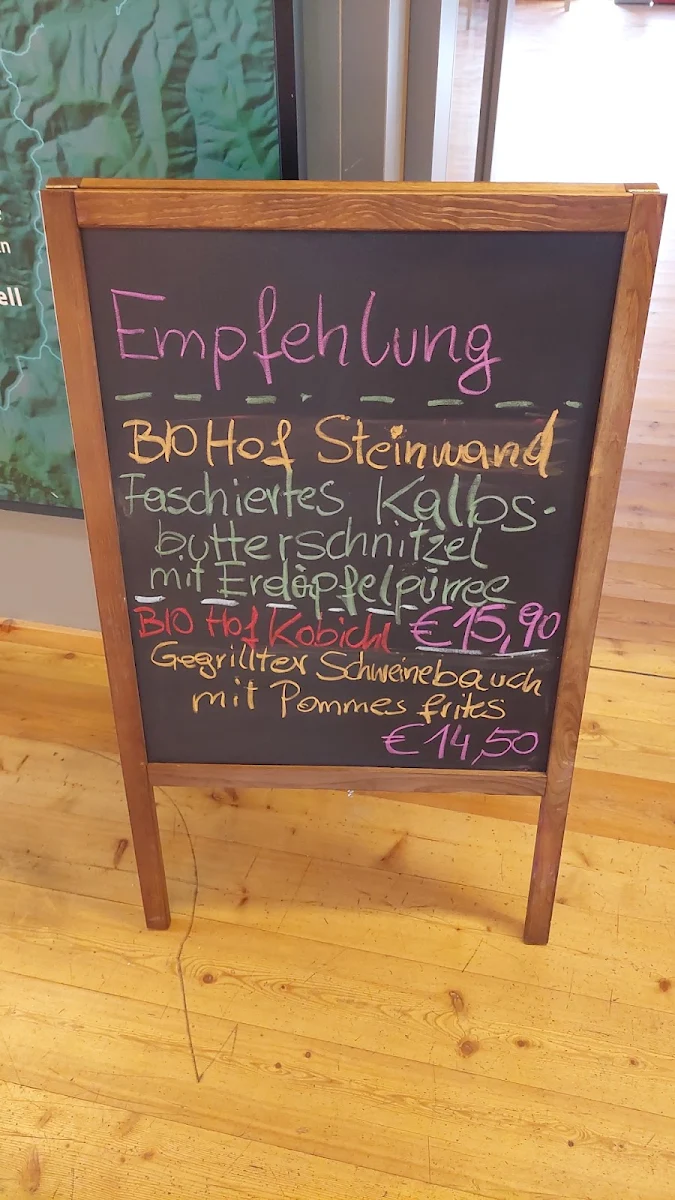 n
ell
Empfehlung
BIO Hof Steinwand
Faschiertes Kalbs-
butterschnitzel
mit Erdäpfelpürree
BIO Hof Kobichl €15,90
Gegrillter Schweinebauch
mit Pommes frites
€14,50